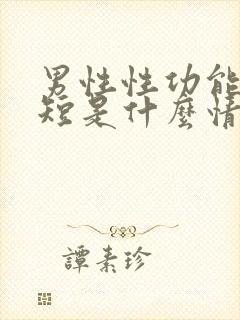 男性性功能
短是什麼情
譚素珍